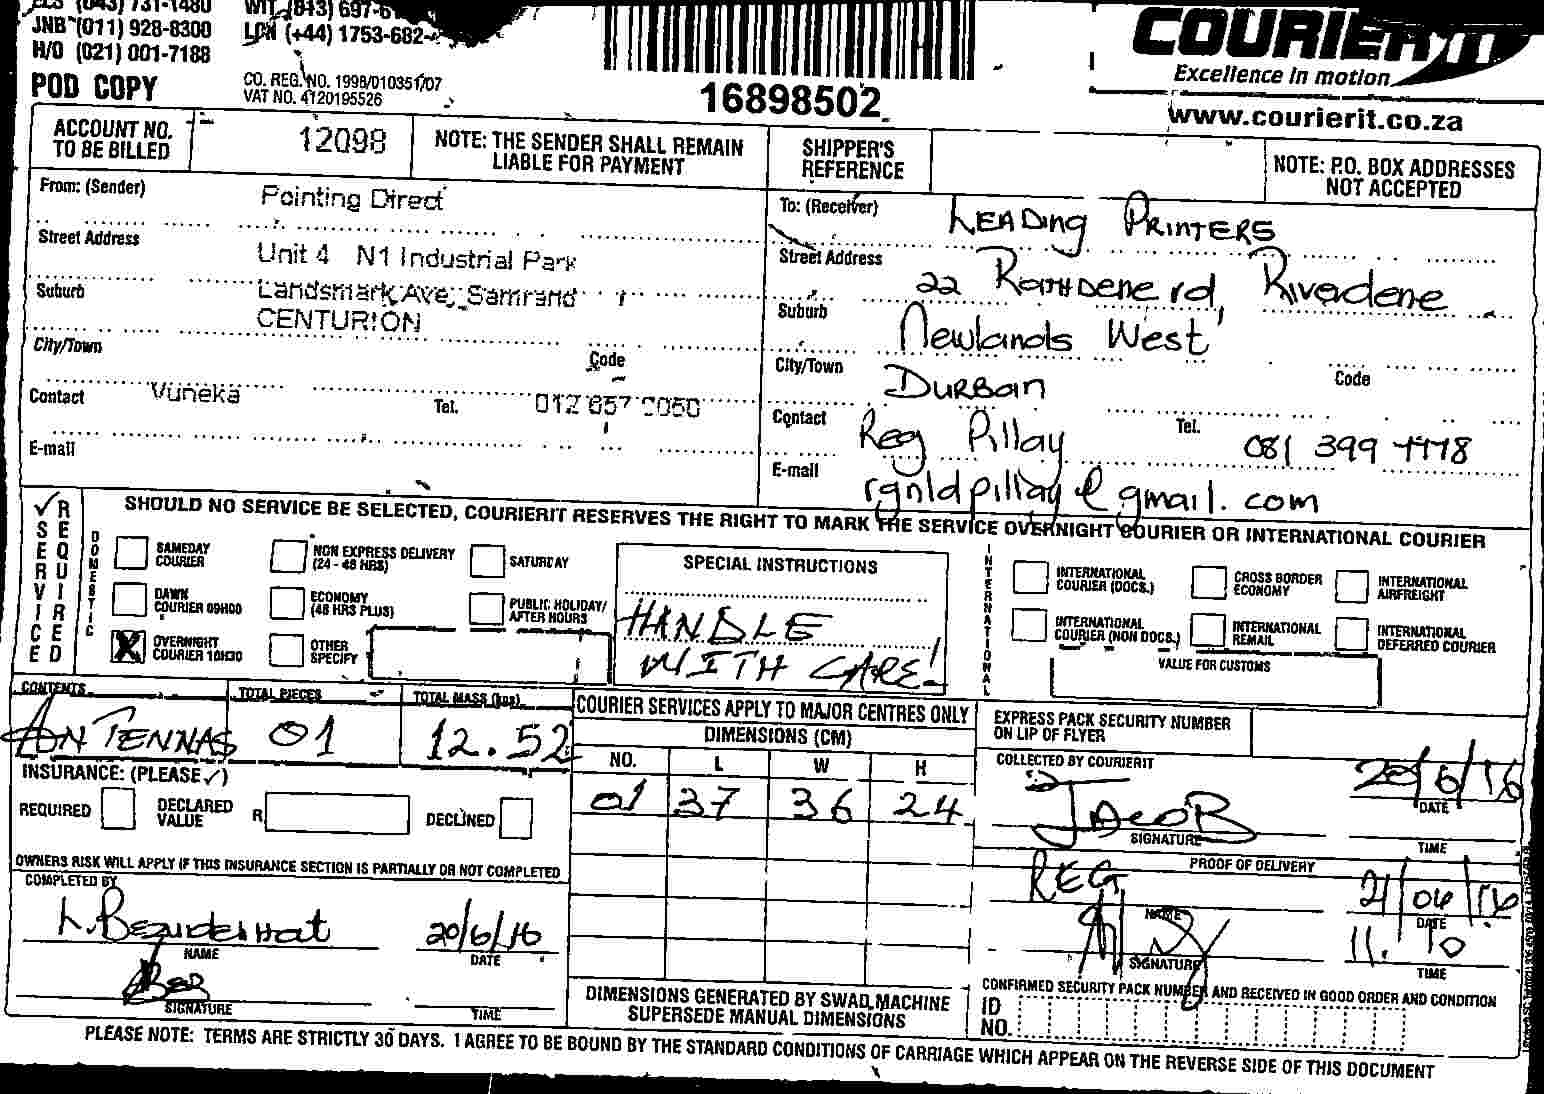 (043) 731-1480
JNB (011) 928-8300 (+44) 1753-682-
H/O (021) 001-7188
POD COPY
CO. REG. NO. 1998/010351/07
VAT NO. 4120195526
16898502
COURIER IT
Excellence in motion
www.courierit.co.za
ACCOUNT NO. TO BE BILLED
12098
NOTE: THE SENDER SHALL REMAIN LIABLE FOR PAYMENT
SHIPPER'S REFERENCE
NOTE: P.O. BOX ADDRESSES NOT ACCEPTED
From: (Sender) Pointing Direct
Street Address Unit 4 N1 Industrial Park
Suburb Landsmark Ave, Samrand
CENTURION
City/Town Code
Contact Vuneka Tel. 012 657
E-mail
To: (Receiver) LEADING PRINTERS
Street Address 22 Rathdene rd, Riverdene
Suburb Newlands West
City/Town Durban Code
Contact Reg Pillay Tel. 081 399
E-mail rgnldpillay@gmail.com
✓ SERVICE REQUIRED
SHOULD NO SERVICE BE SELECTED, COURIERIT RESERVES THE RIGHT TO MARK THE SERVICE OVERNIGHT COURIER OR INTERNATIONAL COURIER
DOMESTIC
SAMEDAY COURIER
NON EXPRESS DELIVERY (24 - 48 HRS)
SATURDAY
DAWN COURIER 09H00
ECONOMY (48 HRS PLUS)
PUBLIC HOLIDAY/ AFTER HOURS
X OVERNIGHT COURIER 10H30
OTHER SPECIFY
SPECIAL INSTRUCTIONS
HANDLE
WITH CARE!
INTERNATIONAL
INTERNATIONAL COURIER (DOCS.)
CROSS BORDER ECONOMY
INTERNATIONAL AIRFREIGHT
INTERNATIONAL COURIER (NON DOCS.)
INTERNATIONAL REMAIL
INTERNATIONAL DEFERRED COURIER
VALUE FOR CUSTOMS
CONTENTS TOTAL PIECES TOTAL MASS (kgs)
ANTENNAS 01 12.52
INSURANCE: (PLEASE ✓)
REQUIRED DECLARED VALUE R DECLINED
OWNERS RISK WILL APPLY IF THIS INSURANCE SECTION IS PARTIALLY OR NOT COMPLETED
COMPLETED BY
20/6/16
NAME DATE
SIGNATURE TIME
COURIER SERVICES APPLY TO MAJOR CENTRES ONLY
DIMENSIONS (CM)
NO. L W H
01 37 36 24
DIMENSIONS GENERATED BY SWAD MACHINE SUPERSEDE MANUAL DIMENSIONS
EXPRESS PACK SECURITY NUMBER ON LIP OF FLYER
COLLECTED BY COURIERIT
JACOB 20/6/16
SIGNATURE DATE
TIME
PROOF OF DELIVERY
REG 21/06/16
NAME DATE
11.10
SIGNATURE TIME
CONFIRMED SECURITY PACK NUMBER AND RECEIVED IN GOOD ORDER AND CONDITION
ID NO.
PLEASE NOTE: TERMS ARE STRICTLY 30 DAYS. I AGREE TO BE BOUND BY THE STANDARD CONDITIONS OF CARRIAGE WHICH APPEAR ON THE REVERSE SIDE OF THIS DOCUMENT